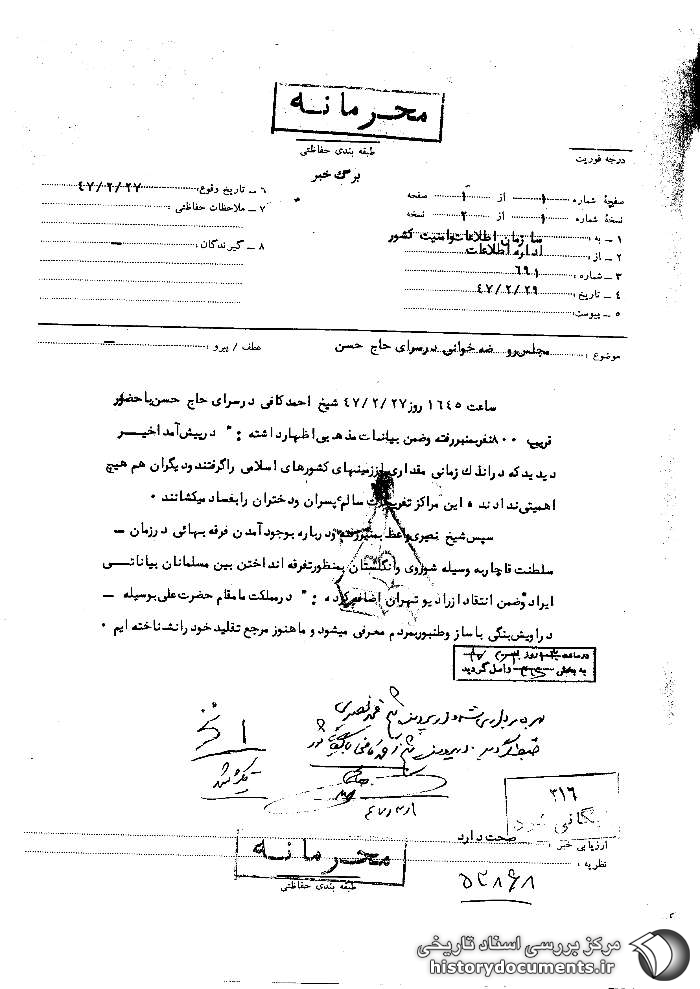 محرمانه
طبقه بندی حفاظتی
برگ خبر
درجه فوریت
صفحهٔ شماره ۱ از ۱ صفحه
نسخهٔ شماره ۱ از ۲ نسخه
۱ ــ به: سازمان اطلاعات وامنیت کشور
۲ ــ از: اداره اطلاعات
۳ ــ شماره: ۶۹۱
۴ ــ تاریخ: ۴۷/۲/۲۹
۵ ــ پیوست:
۶ ــ تاریخ وقوع: ۴۷/۲/۲۷
۷ ــ ملاحظات حفاظتی:
۸ ــ گیرندگان: ــ
موضوع: مجلس روضه خوانی در سرای حاج حسن عطف / پیرو: ــ
ساعت ۱۶۴۵ روز ۴۷/۲/۲۷ شیخ احمد کافی در سرای حاج حسن با حضور
قریب ۸۰۰ نفر بمنبر رفته وضمن بیانات مذهبی اظهار داشته : " در پیش آمد اخیر
دیدید که در اندک زمانی مقداری از زمینهای کشورهای اسلامی را گرفتند و دیگران هم هیچ
اهمیتی ندادند ، این مراکز تفریحات سالم پسران و دختران را بفساد میکشانند .
سپس شیخ نصری واعظ بمنبر رفته و درباره بوجود آمدن فرقه بهائی در زمان ــ
سلطنت قاجار به وسیله شوروی و انگلستان بمنظور تفرقه انداختن بین مسلمانان بیاناتی
ایراد وضمن انتقاد از رادیو تهران اضافه کرد : " در مملکت ما مقام حضرت علی بوسیله ــ
دراویش بنگی با ساز و طنبور بمردم معرفی میشود و ما هنوز مرجع تقلید خود را نشناخته ایم .
در ساعت روز
به بخش ۳۱۶ واصل گردید
۳۱۶
بایگانی شود
ارزیابی خبر: صحت دارد
نظریه:
محرمانه
طبقه بندی حفاظتی
مرکز بررسی اسناد تاریخی
historydocuments.ir